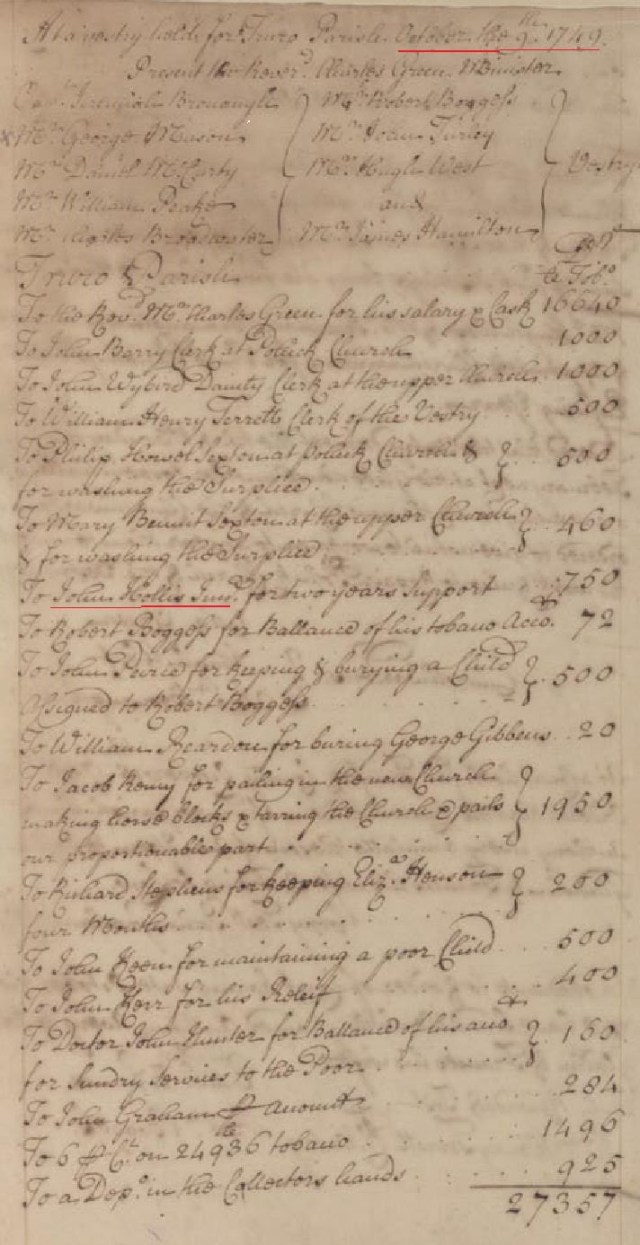 At a vestry held for Truro Parish October the 9th 1749
Present the Reverd. Charles Green Minister
Capt. Jeremiah Bronaugh Mr. Robert Boggess
Mr. George Mason Mr. John Turley
Mr. Daniel McCarty Mr. Hugh West Vestry
Mr. William Peake and
Mr. Charles Broadwater Mr. James Hamilton
Truro Parish Dr.
Tobo.
To the Revd. Mr. Charles Green for his salary & Cask 16640
To John Barry Clerk at Pohick Church 1000
To John Wybird Dainty Clerk at the upper Church 1000
To William Henry Terrett Clerk of the Vestry 500
To Philip Howsel Sexton at Pohick Church & 500
for washing the Surplice
To Mary Bennit Sexton at the upper Church 460
& for washing the Surplice
To John Hollis Junr. for two years Support 750
To Robert Boggess for Ballance of his tobacco Acco. 72
To John Peirce for keeping & burying a Child 500
Assigned to Robert Boggess
To William Reardon for buring George Gibbens 20
To Jacob Remy for pailing in the new Church
making horse blocks & tarring the Church & pails 1950
our proportionable part
To Richard Stephens for keeping Eliza. Henson 200
four Months
To John Keen for maintaining a poor Child 500
To John Kerr for his Releif 400
To Doctor John Hunter for Ballance of his acco 160
for Sundry Services to the Poor
To John Graham P Account 284
To 6 P Ct. on 24936 tobacco 1496
To a Depo. in the Collectors hands 925
27357